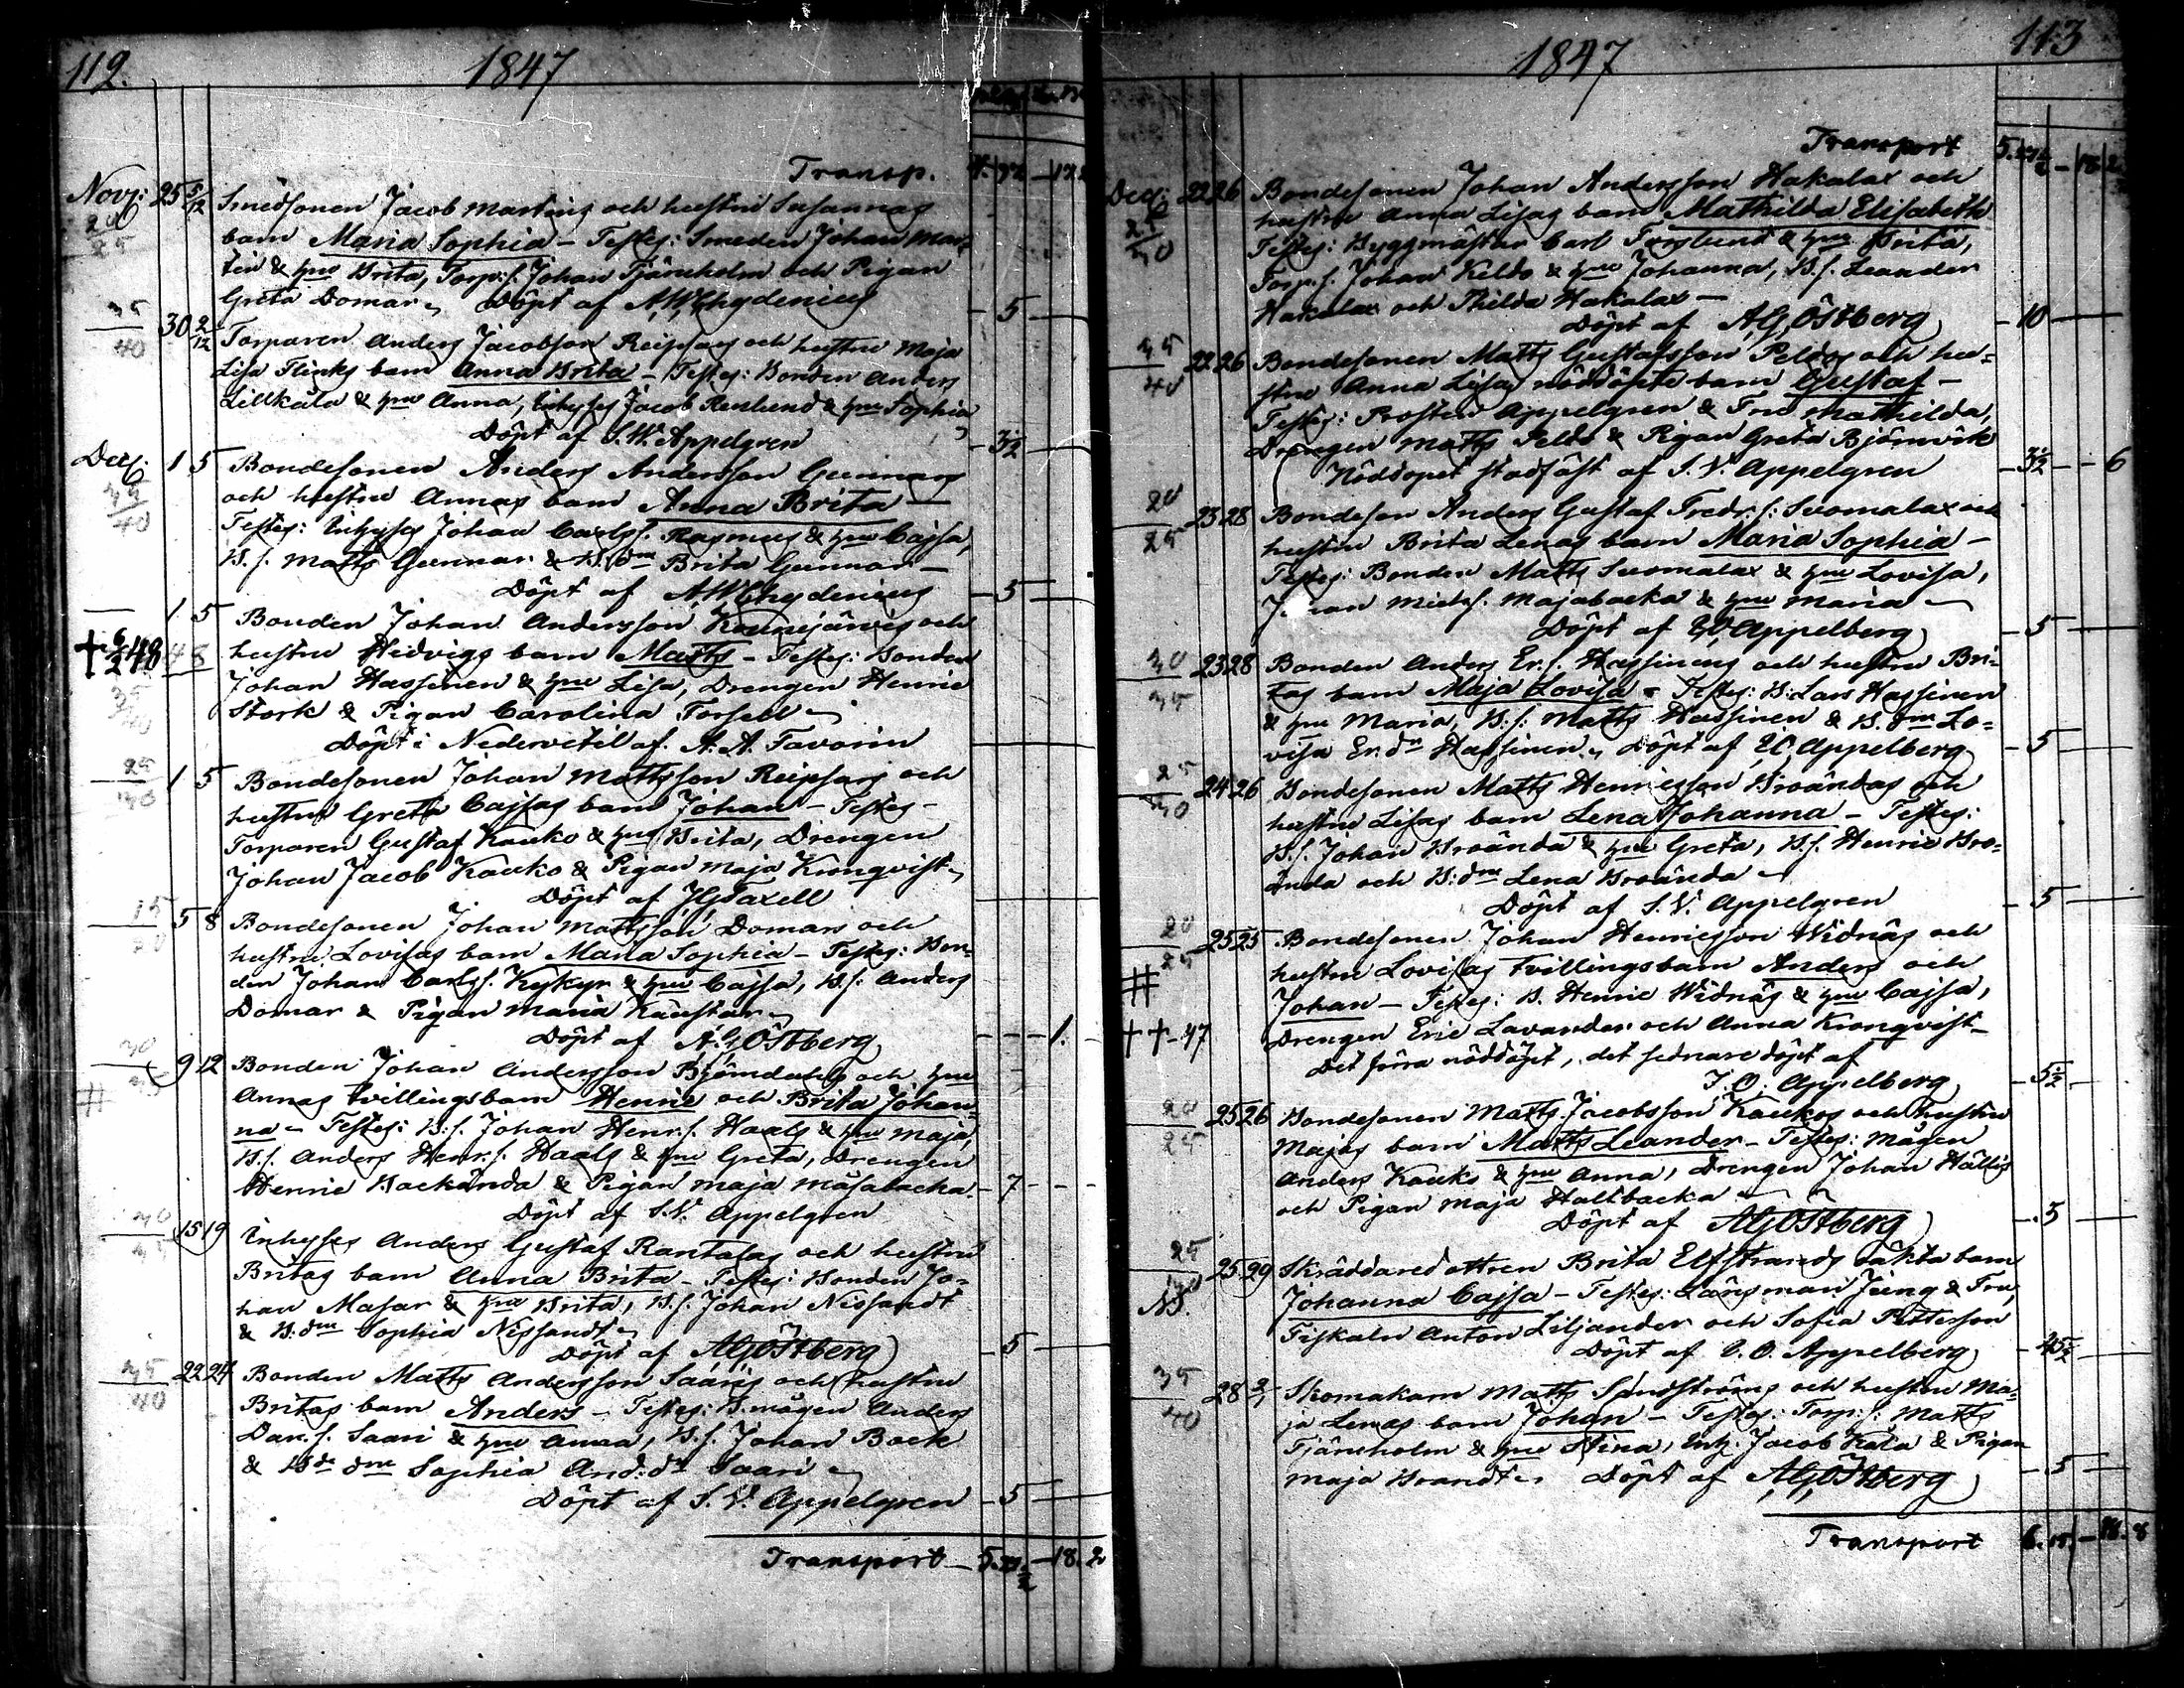 112.
1847
Transp.
Novz: 25 5/12 Smedsonen Jacob Martins och hustru Susannas
barn Maria Sophia – Testes: Smeden Johan Mar-
tin & hu Brita, Torp:s. Johan Tjäruholm och Pigan
Greta Domar. Döpt af AWChydenius – 5 –
30 2/12 Torparen Anders Jacobson Reipsars och hustru Maja
Lisa Flinks barn Anna Brita – Testes: Bonden Anders
Lillkåla & hu Anna, Inhyses Jacob Renlund & hu Sophia
Döpt af S.W. Appelgren – 3½ –
Dec: 1 5 Bondesonen Anders Andersson Gunnars
och hustru Annas barn Anna Brita –
Testes: Inhyses Johan Carlss. Rasmus & hu Cajsa,
B.s. Matts Gunnar & B.dm Brita Gunnar –
Döpt af AWChydenius – 5 –
1 5 Bonden Johan Andersson och
hustru Hedvigs barn Matts – Testes: Bonden
Johan Hassinen & hu Lisa, Drengen Henric
Stork & Pigan Carolina Forsell
Döpt i Nedervetil af A. A. Favorin
1 5 Bondesonen Johan Mattsson Reipsars och
hustru Greta Cajsas barn Johan – Testes –
Torparen Gustaf Kauko & hu Brita, Drengen
Johan Jacob Kauko & Pigan Maja Kronqvist
Döpt af
5 8 Bondesonen Johan Mattsson Domars och
hustru Lovisas barn Maria Sophia – Testes: Bon-
den Johan Carlss. Kykyr & hu Cajsa, B.s. Anders
Domar & Pigan Maria Käustar
Döpt af AGÖstberg – 1.
9 12 Bonden Johan Andersson Björndahls och hu
Annas tvillingsbarn Henric och Brita Johan-
na – Testes: B.s. Johan Henr.s. Haals & hu Maja,
B.s. Anders Henr.s. Haals & hu Greta, Drengen
Henric Backända & Pigan Maja Måsabacka. – 7 –
Döpt af S.V. Appelgren
15 19 Inhyses Anders Gustaf Rantalas och hustru
Britas barn Anna Brita – Testes: Bonden Jo-
han Masar & hu Brita, B.s. Johan Nissandt
& B:dm Sophia Nissandt
Döpt af AGÖstberg – 5 –
22 24 Bonden Matts Andersson Saaris och hustru
Britas barn Anders – Testes: B.mågen Anders
Dan.s. Saari & hu Anna, B.s. Johan Bock
& dm Sophia And:dr Saari
Döpt af S. V. Appelgren – 5 –
Transport – 18. 2
1847
113
Transport
Dec: 22 26 Bondesonen Johan Andersson Hakalax och
hustru Anna Lisas barn Mathilda Elisabeth
Testes: Byggmästar Carl Forslund & hu Brita,
Torp.s. Johan Keldo & hu Johanna, B.s. Leander
Hakalax och Thilda Hakalax –
Döpt af AGÖstberg – 10 –
22 26 Bondesonen Matts Gustafsson Peldos och hu-
stru Anna Lisas nöddöpte barn Gustaf –
Testes: Prosten Appelgren & Fru Mathilda,
Drengen Matts Peldo & Pigan Greta Björnvik
Nöddopet stadfäst af S. V. Appelgren – 3½ – 6
23 28 Bondeson Anders Gustaf Fredr.s. Svomalax och
hustru Brita Lenas barn Maria Sophia –
Testes: Bonden Matts Svomalax & hu Lovisa,
Johan Mich.s. Majabacka & hu Maria
Döpt af Appelberg – 5 –
23 28 Bonden Anders Er.s. Hassinens och hustru Bri-
tas barn Maja Lovisa – Testes: B: Lars Hassinen
& hu Maria, B.s. Matts Hassinen & B.dm Lo-
visa Er.dr Hassinen. Döpt af Appelberg – 5 –
24 26 Bondesonen Matts Henricsson Broändas och
hustru Lisas barn Lena Johanna – Testes:
B.s. Johan Broända & hu Greta, B.s. Henric Bro-
ända och B:dm Lena Broända –
Döpt af S. V. Appelgren – 5 –
25 25 Bondesonen Johan Henricsson Widnäs och
hustru Lovisas tvillingsbarn Anders och
Johan – Testes: B. Henric Widnäs & hu Cajsa,
Drengen Eric Lavander och Anna Kronqvist –
Det förra nöddöpt, det sednare döpt af
Appelberg – 5½ –
25 26 Bondesonen Matts Jacobsson Kaukos och hustru
Majas barn Matts Leander – Testes: Mågen
Anders Kauko & hu Anna, Drengen Johan Hällis
och Pigan Maja Haltbacka
Döpt af AGÖstberg – 5 –
25 29 Skräddaredottren Brita Elfstrands oäkta barn
Johanna Cajsa – Testes: Länsman Jung & Fru,
Fiskaln Anton Liljander och Sofia Petterson
Döpt af Appelberg
28 Skomakarn Matts Sandströms och hustru Ma-
ja Lenas barn Johan – Testes: Torp:s: Matts
Tjäruholm & hu Stina, Inh. Jacob Kåla & Pigan
Maja Brandt. Döpt af AGÖstberg – 5 –
Transport